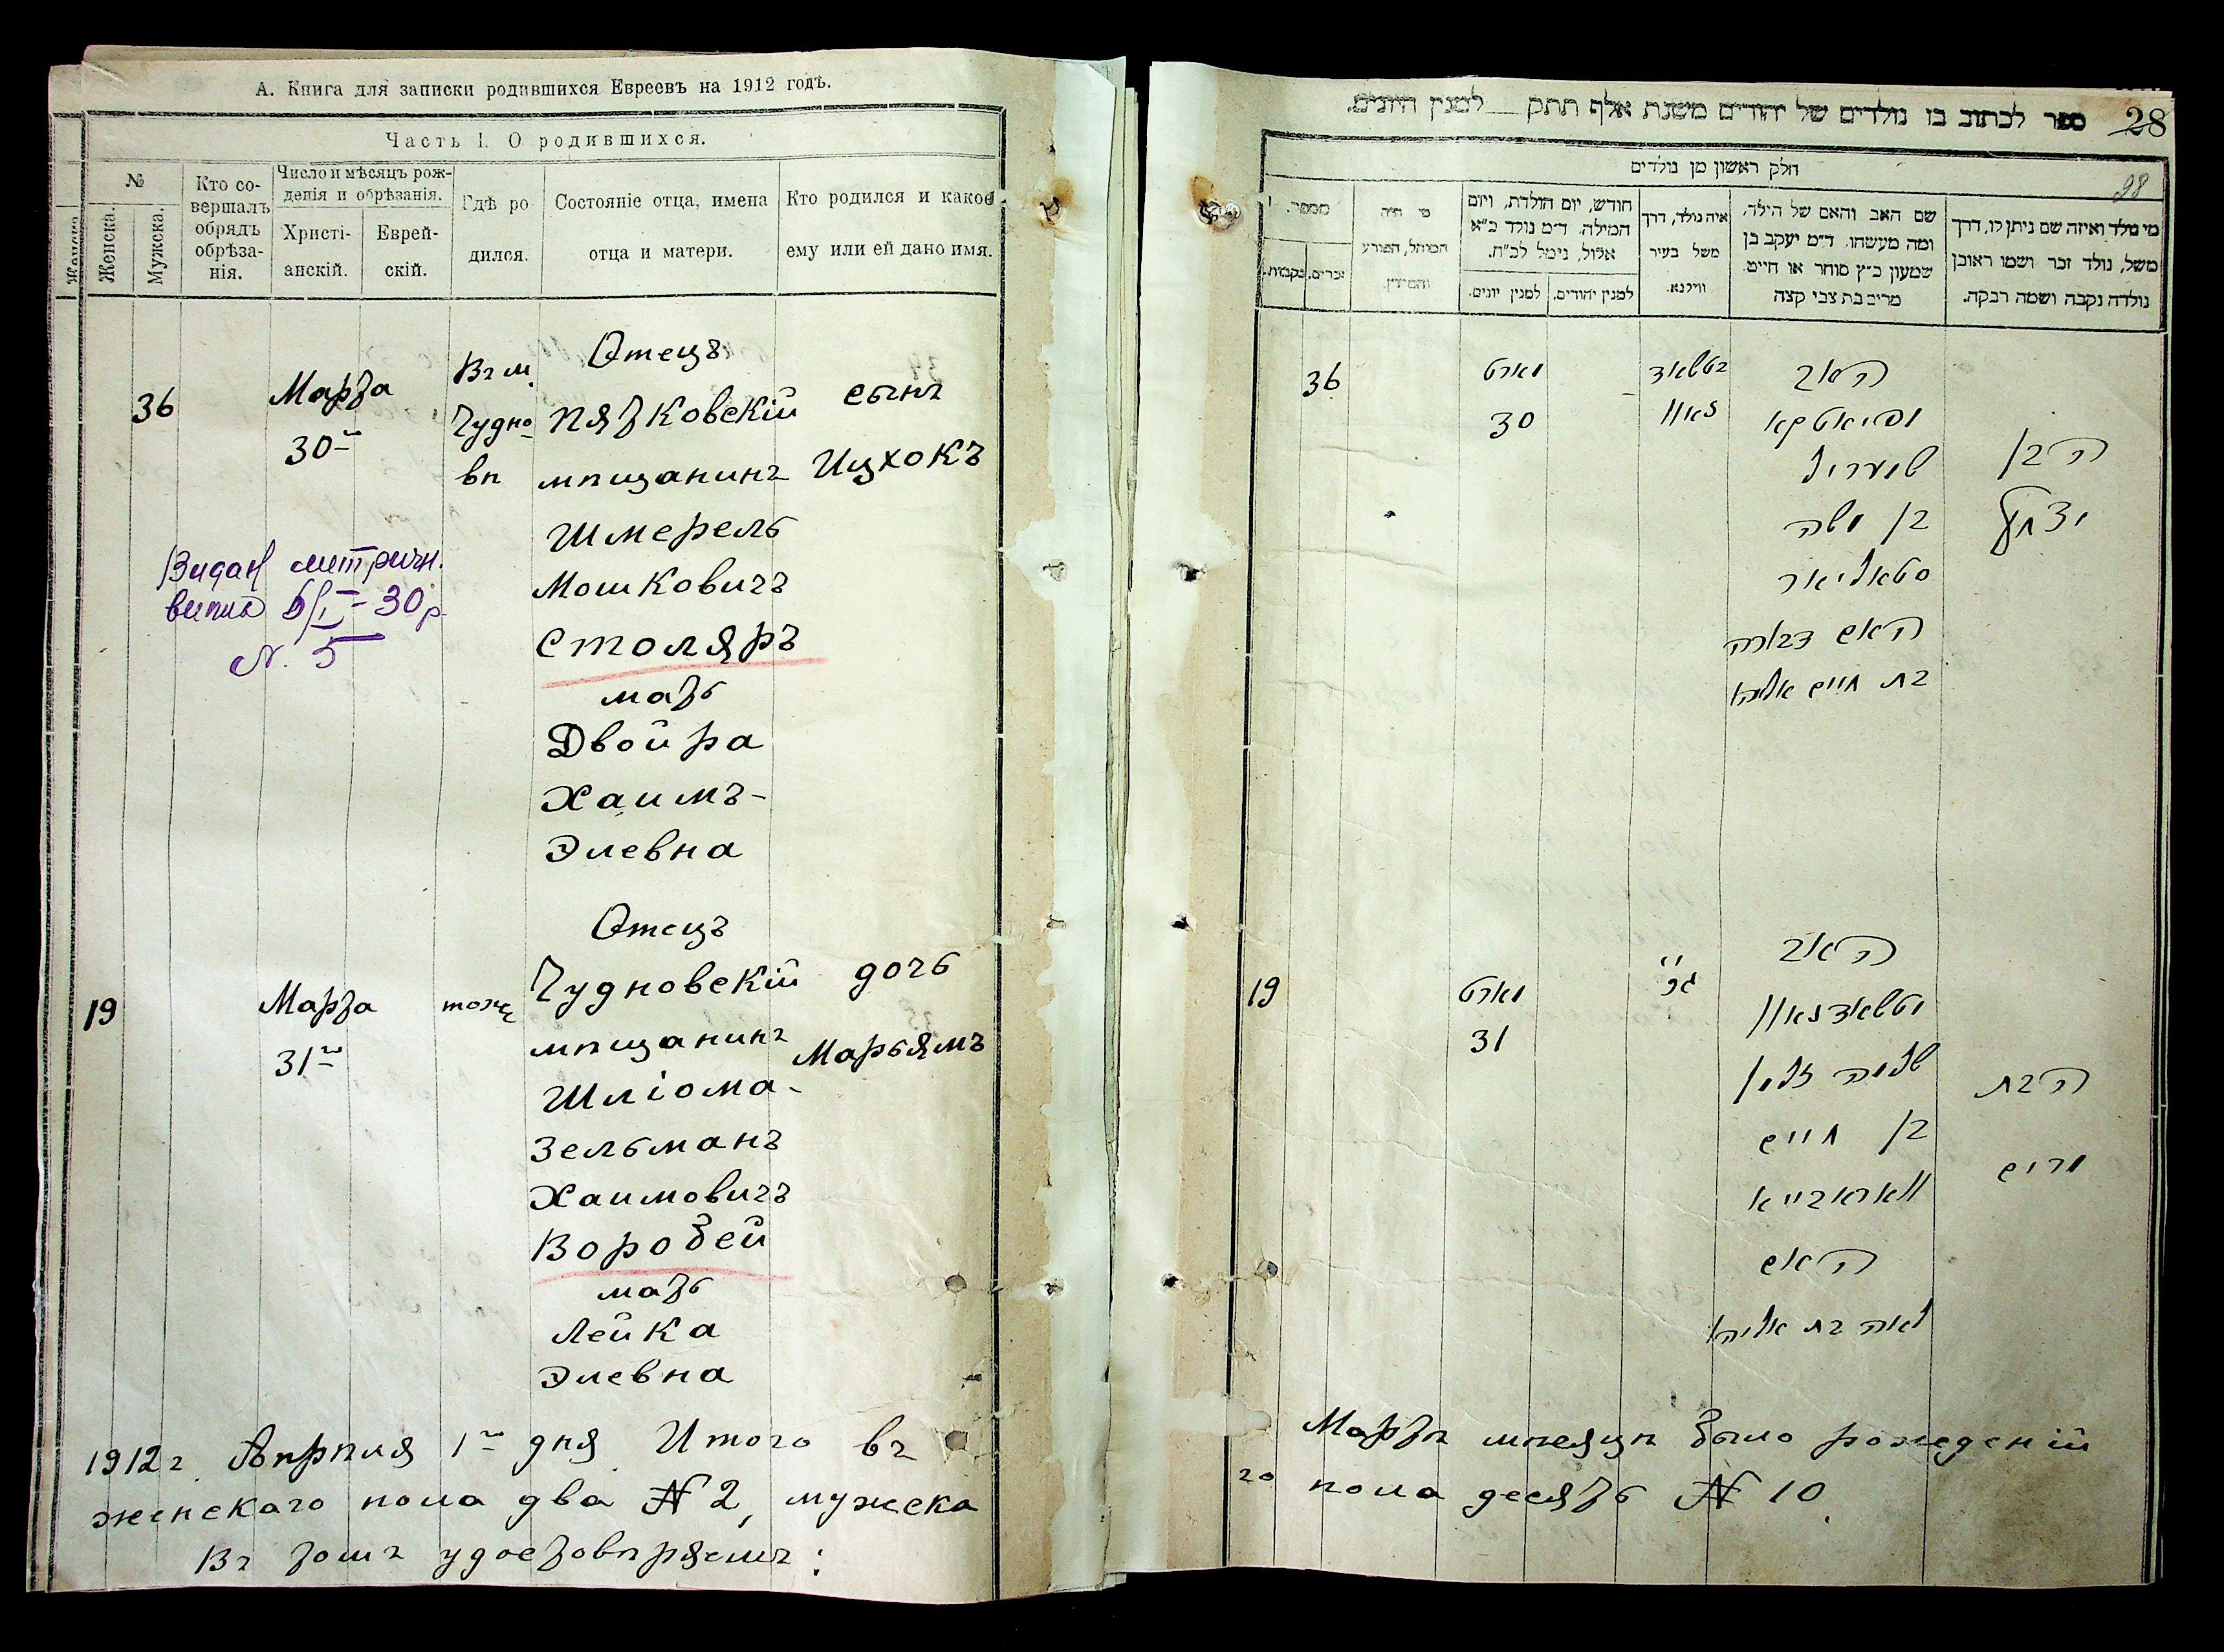 А. Книга для записки родившихся Евреевъ на 1912 годъ.
Часть I. О родившихся.
№
Женска.
Мужска.
Кто со-
вершалъ
обрядъ
обрѣза-
нія.
Число и мѣсяцъ рож-
денія и обрѣзанія.
Христі-
анскій.
Еврей-
скій.
Гдѣ ро
дился.
Состояніе отца, имена
отца и матери.
Кто родился и какое
ему или ей дано имя.
36
Марта
30го
Въ м.
Чудно-
вѣ
Отецъ
Пятковскій
мѣщанинъ
Шмерель
Мошковичъ
Столяръ
мать
Двойра
Хаимъ-
Элевна
сынъ
Ицхокъ
Видан метричн.
5/I - 30р.
N. 5
19
Марта
31го
тоже
Отецъ
Чудновскій
мѣщанинъ
Шліома-
Зельманъ
Хаимовичъ
Воробей
мать
Лейка
Элевна
дочь
Марьямъ
1912г. Апрѣля 1го дня Итого въ
женскаго пола два № 2, мужска
Въ томъ удостовѣряемъ:
ספר לכתוב בו נולדים של יהודים משנת אלף תתק למנין היונים.
28
חלק ראשון מן נולדים
28
מי נולד ואיזה שם ניתן לו, דרך
משל, נולד זכר ושמו ראובן
נולדה נקבה ושמה רבקה.
שם האב והאם של הילד,
ומה מעשהו. ד״מ יעקב בן
שמעון כ״ץ סוחר או חייט
מרים בת צבי קצה
איה נולד, דרך
משל בעיר
ווילנא.
חודש, יום הולדת, ויום
המילה. ד״מ נולד כ״א
אלול, נימל לכ״ח.
למנין יהודים.
למנין יונים.
מי היה
המוהל, הפורע
והמוצץ.
מספר.
זכרים.
נקבות.
36
מארט
30
טשאד
נאוו
האב
מפיאטקא
שמעריל
בן משה
סטאליאר
האם דבורה
בת חיים אליהו
הבן
יצחק
19
מארט
31
האב
מטשאדנאוו
שלמה זלמן
בן חיים
וואראבייא
האם
לאה בת אליהו
הבת
מרים
Мартѣ мѣсяцѣ было рожденій
20 пола десять № 10.